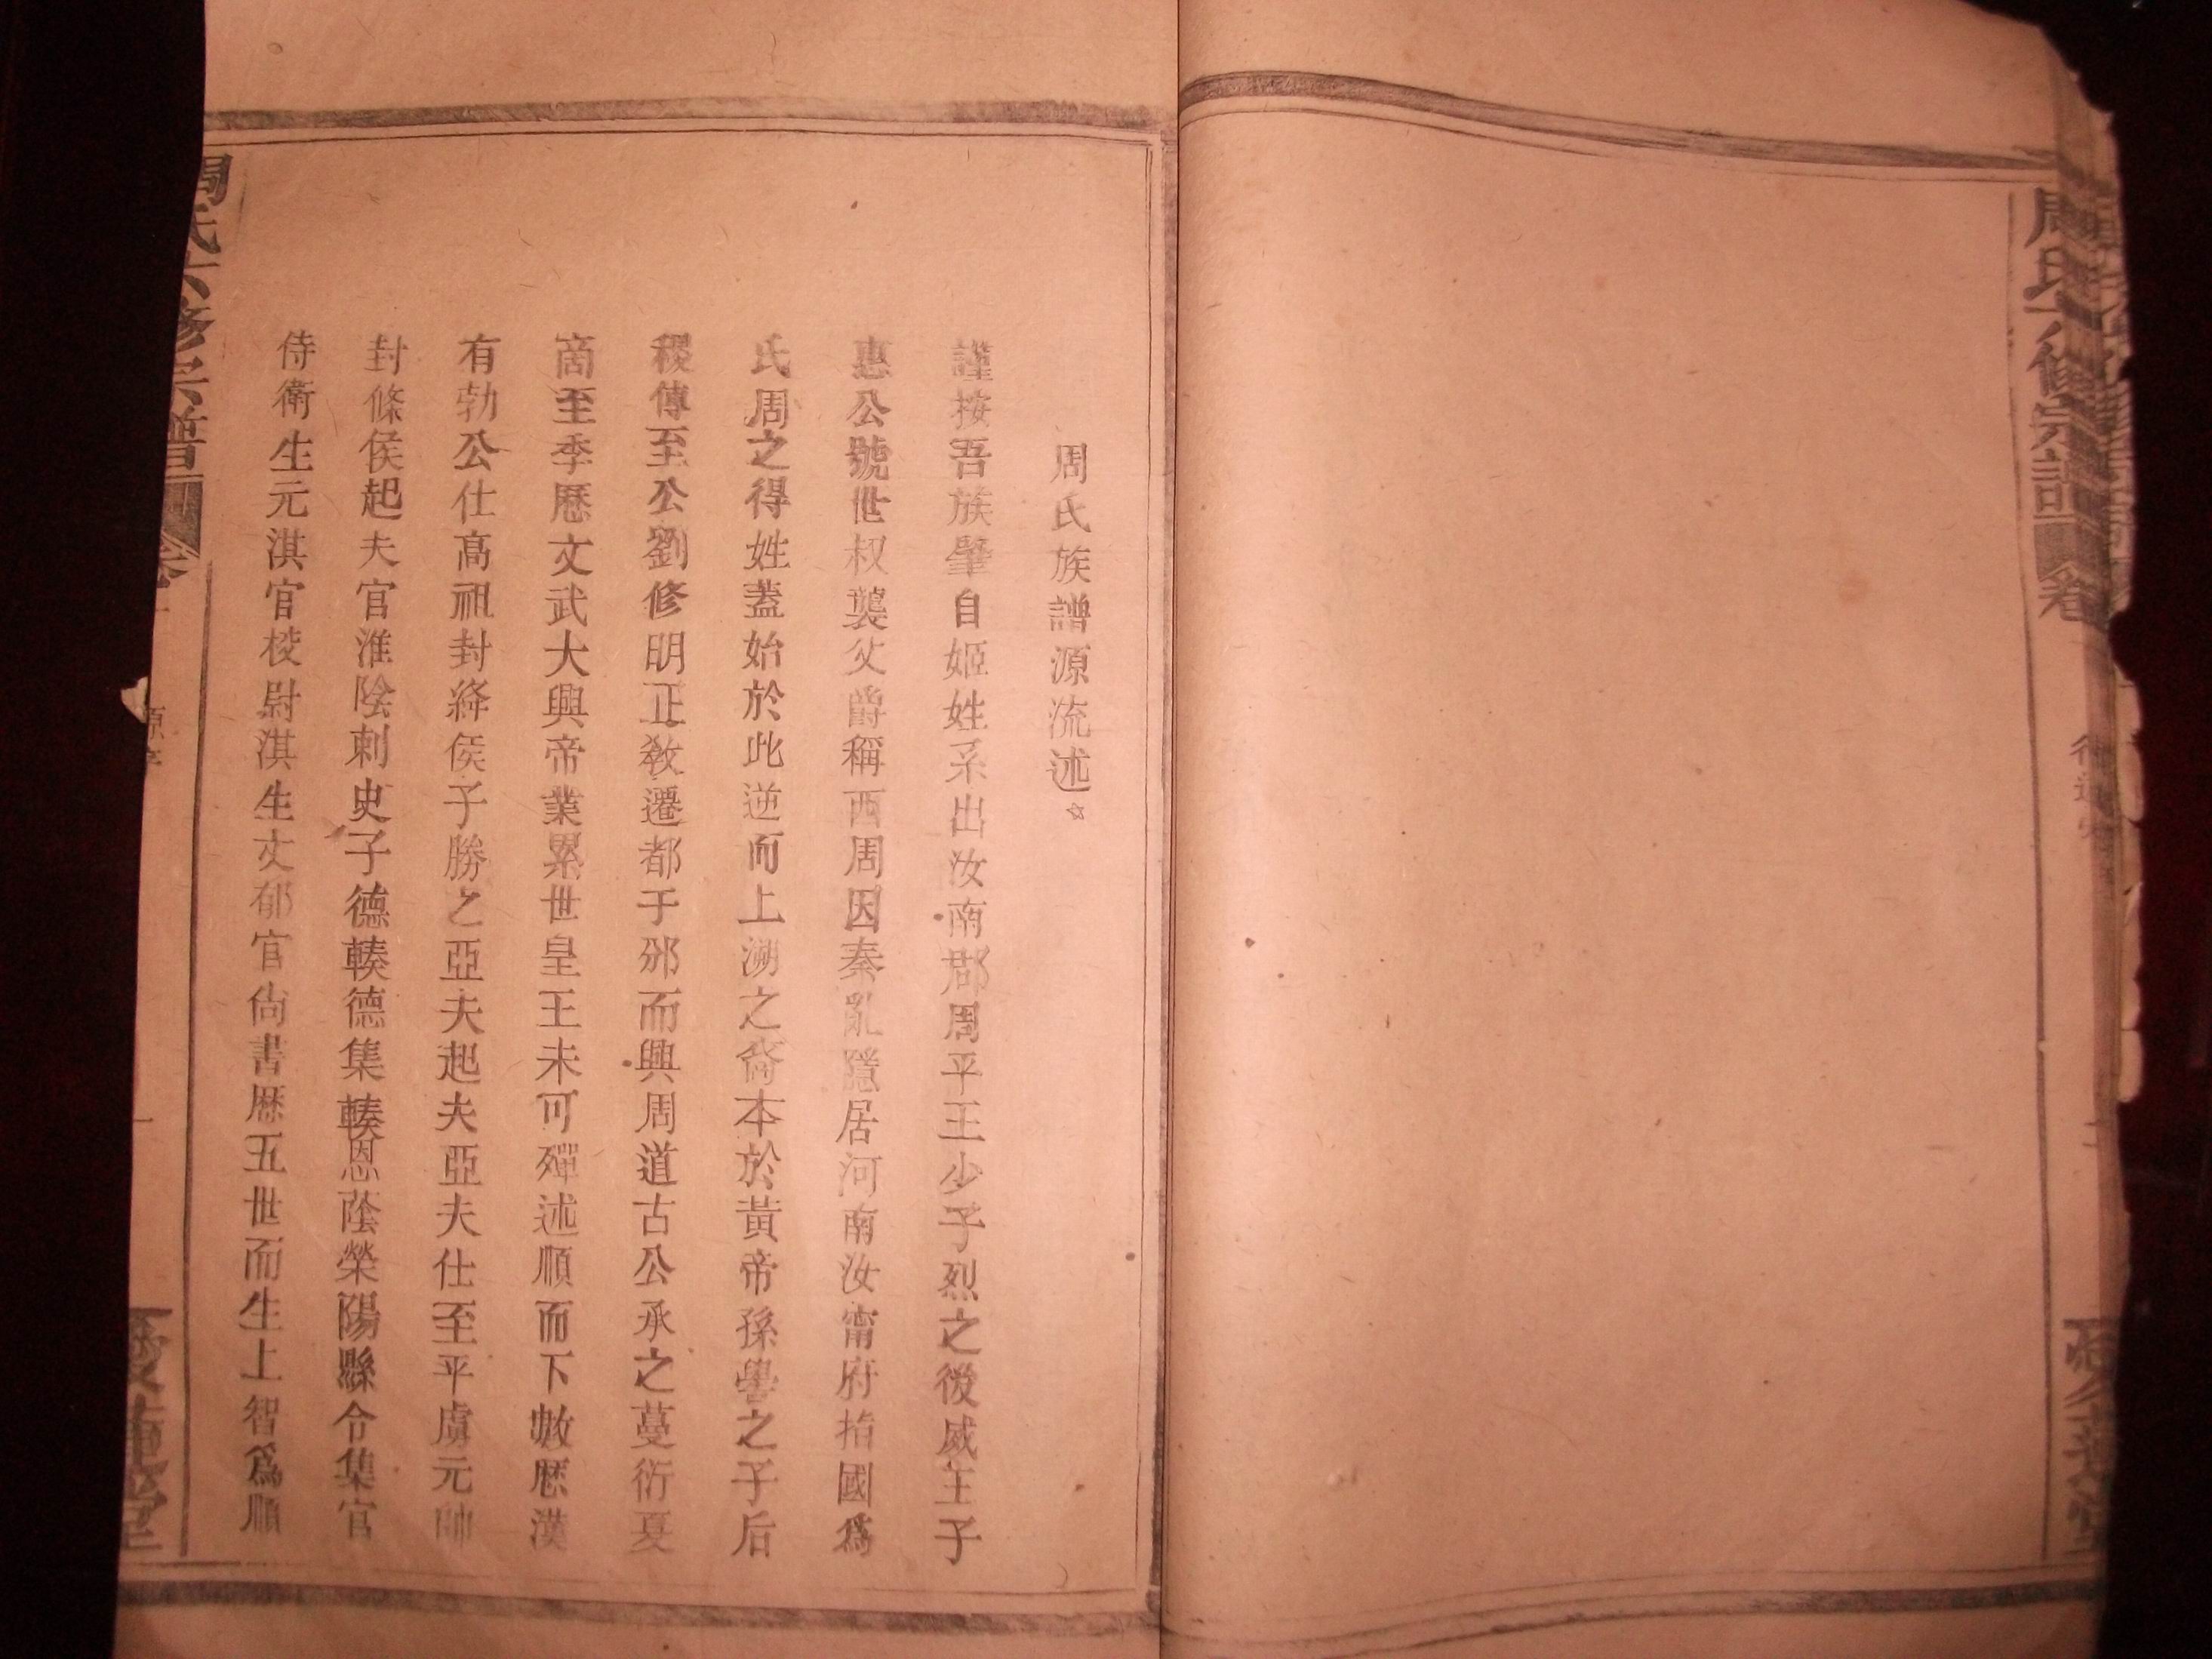 周氏六修宗譜
卷
二
愛蓮堂
周氏族譜源流述
謹按吾族肇自姬姓系出汝南郡周平王少子烈之後威王子
惠公號世叔襲父爵稱西周因秦亂隱居河南汝甯府指國爲
氏周之得姓蓋始於此逆而上溯之裔本於黃帝孫嚳之子后
稷傳至公劉修明正教遷都于邠而興周道古公承之蔓衍夏
商至季歷文武大興帝業累世皇王未可殫述順而下數歷漢
有勃公仕高祖封絳侯子勝之亞夫起夫亞夫仕至平虜元帥
封條侯起夫官淮陰刺史子德輳德集輳恩蔭榮陽縣令集官
侍衛生元淇官校尉淇生文郁官尙書歷五世而生上智爲順
周氏六修宗譜
卷一
源
一
愛蓮堂